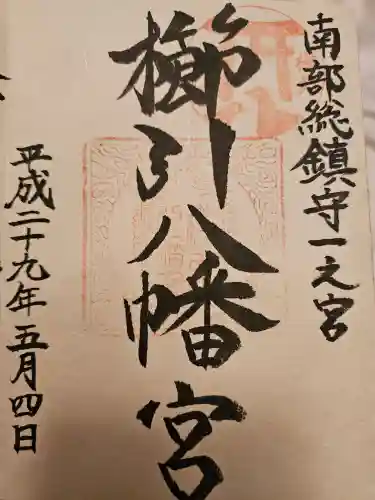 南部総鎮守一之宮
櫛引八幡宮
平成二十九年五月四日